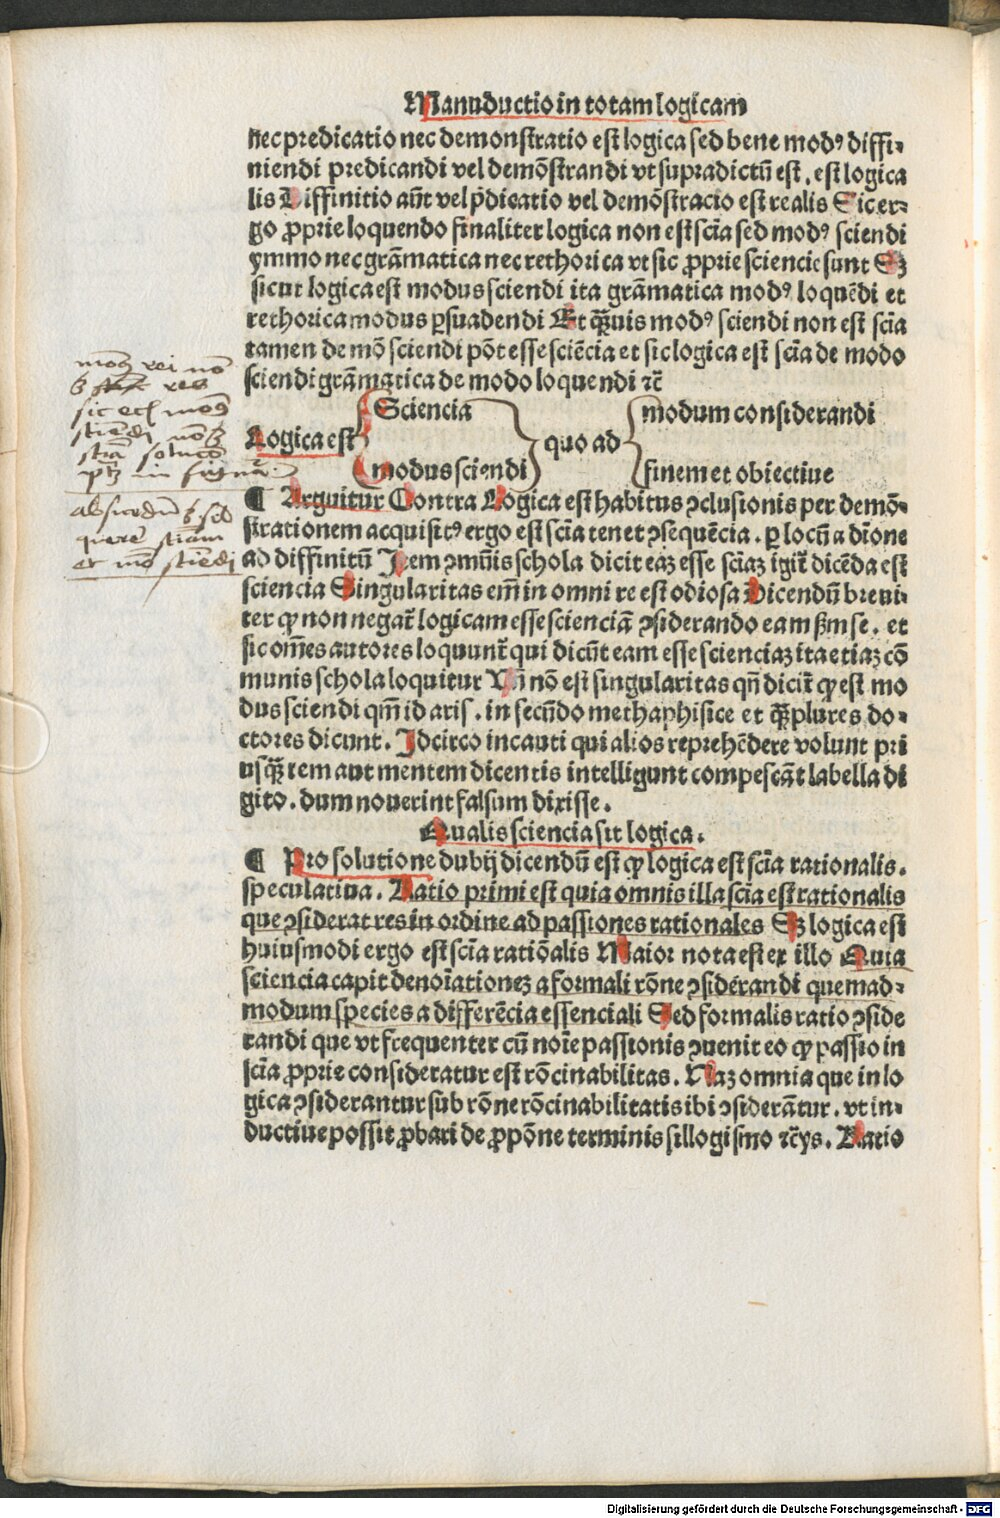 Manuductio in totam logicam
nec predicatio nec demonstratio est logica sed bene modꝰ diffi-
niendi predicandi vel demōstrandi vt supradictū est. est logica
lis Diffinitio aūt vel p̄dicatio vel demōstracio est realis Sic er-
go ꝓprie loquendo finaliter logica non est sc̄ia sed modꝰ sciendi
ymmo nec grāmatica nec rethorica vt sic ꝓprie sciencie sunt Sꝫ
sicut logica est modus sciendi ita grāmatica modꝰ loquēdi et
rethorica modus ꝑsuadendi Et q̄ꝫuis modꝰ sciendi non est sc̄ia
tamen de mō sciendi pōt esse sciēcia et sic logica est sc̄ia de modo
sciendi grāmatica de modo loquendi ⁊c̄
Logica est
Sciencia
modus sciendi
quo ad
modum considerandi
finem et obiectiue
¶ Arguitur Contra Logica est habitus ꝯclusionis per demō-
strationem acquisitꝰ ergo est sc̄ia tenet ꝯsequēcia. ꝑ locū a dīone
ad diffinitū Item ꝯmūis schola dicit eaꝫ esse sc̄iaꝫ igit̄ dicēda est
sciencia Singularitas em̄ in omni re est odiosa Dicendū breui-
ter ꝙ non negat̄ logicam esse scienciā ꝯsiderando eam ẜm se. et
sic om̄es autores loquunt̄ qui dicūt eam esse scienciaꝫ ita etiaꝫ cō
munis schola loquitur Vn̄ nō est singularitas qn̄ dicit̄ ꝙ est mo
dus sciendi qm̄ id aris. in secūdo methaphisice et q̄ꝫplures do-
ctores dicunt. Idcirco incauti qui alios reprehēdere volunt pri
usq̄ꝫ rem aut mentem dicentis intelligunt compescāt labella di
gito. dum nouerint falsum dixisse.
Qualis sciencia sit logica.
¶ Pro solutione dubij dicendū est ꝙ logica est sc̄ia rationalis.
speculatiua. Ratio primi est quia omnis illa sc̄ia est rationalis
que ꝯsiderat res in ordine ad passiones rationales Sꝫ logica est
huiusmodi ergo est sc̄ia ratiōalis Maior nota est ex illo Quia
sciencia capit denoīationeꝫ a formali rōne ꝯsiderandi quemad-
modum species a differēcia essenciali Sed formalis ratio ꝯside
randi que vt frequenter cū noīe passionis ꝯuenit eo ꝙ passio in
sc̄ia ꝓprie consideratur est rōcinabilitas. Naꝫ omnia que in lo
gica ꝯsiderantur sub rōne rōcinabilitatis ibi ꝯsiderātur. vt in-
ductiue possit ꝓbari de ꝓpōne terminis sillogismo ⁊c̄ys. Ratio
Digitalisierung gefördert durch die Deutsche Forschungsgemeinschaft - DFG